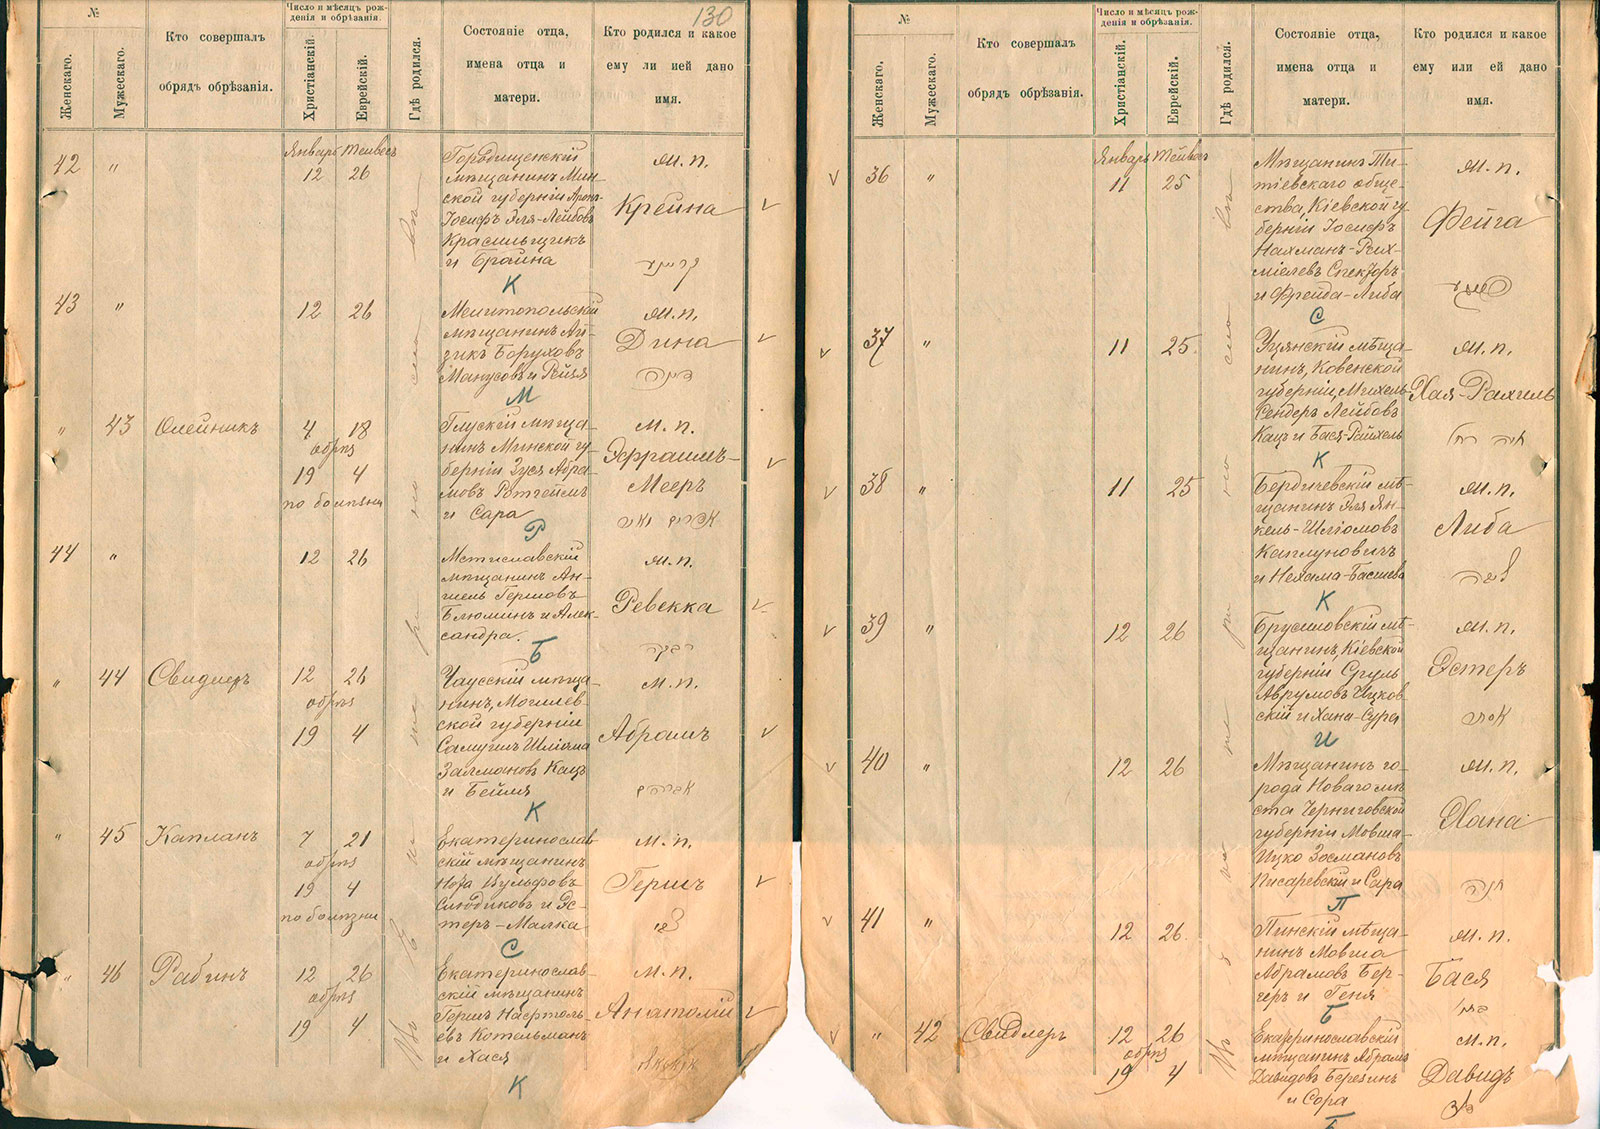 130
№
Женскаго.
Мужескаго.
Кто совершалъ
обрядъ обрѣзанія.
Число и мѣсяцъ рож-
денія и обрѣзанія.
Христіанскій.
Еврейскій.
Гдѣ родился.
Состояніе отца,
имена отца и
матери.
Кто родился и какое
ему ли ией дано
имя.
42 "
Январь Тейвесъ
12 26
Городищенскій
мѣщанинъ Мин-
ской губерніи Аронъ
Іосифъ Эля-Лейбовъ
Красильщикъ
и Брайна
К
м. п.
Крейна
43 "
12 26
Мелитопольскій
мѣщанинъ Ай-
зикъ Боруховъ
Манусовъ и Рейзя
М
м. п.
Дина
דינה
" 43 Олейникъ
4 18
обрѣз
19 4
по болѣзни
Глускій мѣща-
нинъ Минской гу-
берніи Зуся Абра-
мовъ Ротгеймъ
и Сара
Р
м. п.
Эфраимъ-
Мееръ
אפרים מאיר
44 "
12 26
Мстиславскій
мѣщанинъ Ан-
шель Гершовъ
Блюминъ и Алек-
сандра.
Б
м. п.
Ревекка
רבקה
" 44 Свидлеръ
12 26
обрѣз
19 4
Чаусскій мѣща-
нинъ, Могилев-
ской губерніи
Самуилъ Шліома
Залмановъ Кацъ
и Бейля
К
м. п.
Абрамъ
אברהם
" 45 Капланъ
7 21
обрѣз
19 4
по болѣзни
Екатеринослав
скій мѣщанинъ
Нота Вульфовъ
Слюдиковъ и Эс-
теръ-Малка
С
м. п.
Гершъ
" 46 Рабинъ
12 26
обрѣз
19 4
Екатеринослав-
скій мѣщанинъ
Гершъ Нафтоль-
евъ Котельманъ
и Хася
К
м. п.
Анатолій
№
Женскаго.
Мужескаго.
Кто совершалъ
обрядъ обрѣзанія.
Число и мѣсяцъ рож-
денія и обрѣзанія.
Христіанскій.
Еврейскій.
Гдѣ родился.
Состояніе отца,
имена отца и
матери.
Кто родился и какое
ему или ей дано
имя.
36 "
Январь Тейвесъ
11 25
Мѣщанинъ Те-
тіевскаго обще-
ства, Кіевской гу
берніи, Іосифъ
Нахманъ-Рах-
міелевъ Спекторъ
и Фрейда-Либа
С
м. п.
Фейга
פייגא
37 "
11 25.
Уцянскій мѣща-
нинъ, Ковенской
губерніи, Михель-
Сендеръ Лейбовъ
Кацъ и Бася-Рейхель
К
м. п.
Хая-Рахиль
חיה רחל
38 "
11 25
Бердичевскій мѣ-
щанинъ Эля Ян-
кель-Шліомовъ
Каплуновичъ
и Нехама-Басшева
К
м. п.
Либа
ליבה
39 "
12 26
Брусиловскій мѣ-
щанинъ, Кіевской
губерніи Сруль
Аврумовъ Ицков
скій и Хана-Сура
И
м. п.
Эстеръ
אסתר
40 "
12 26
Мѣщанинъ го-
рода Новаго мѣ-
ста Черниговской
губерніи Мовша-
Ицко Зосмановъ
Писаревскій и Сара
П
м. п.
Хана
חנה
41 "
12 26.
Пинскій мѣща-
нинъ Мовша
Абрамовъ Бер-
геръ и Геня
Б
м. п.
Бася
" 42 Свидлеръ
12 26
обрѣз
19 4
Екатринославскій
мѣщанинъ Абрамъ
Давидовъ Березинъ
и Сора
Б
м. п.
Давидъ
דוד